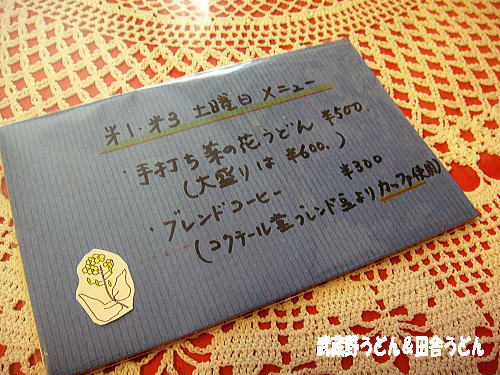 第1・第3 土曜日 メニュー
・手打ち菜の花うどん ¥500.
(大盛りは ¥600.)
・ブレンドコーヒー ¥300
(コクテール堂ブレンド豆よりカップ使用)
武蔵野うどん&田舎うどん